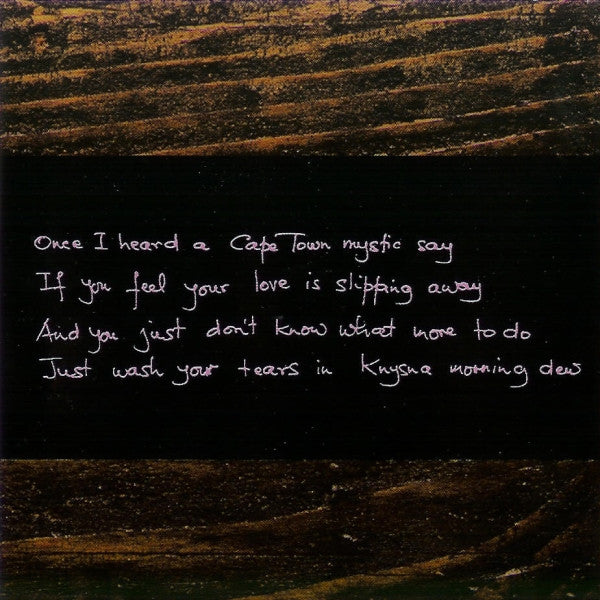 Once I heard a Cape Town mystic say
If you feel your love is slipping away
And you just don't know what more to do
Just wash your tears in Knysna morning dew